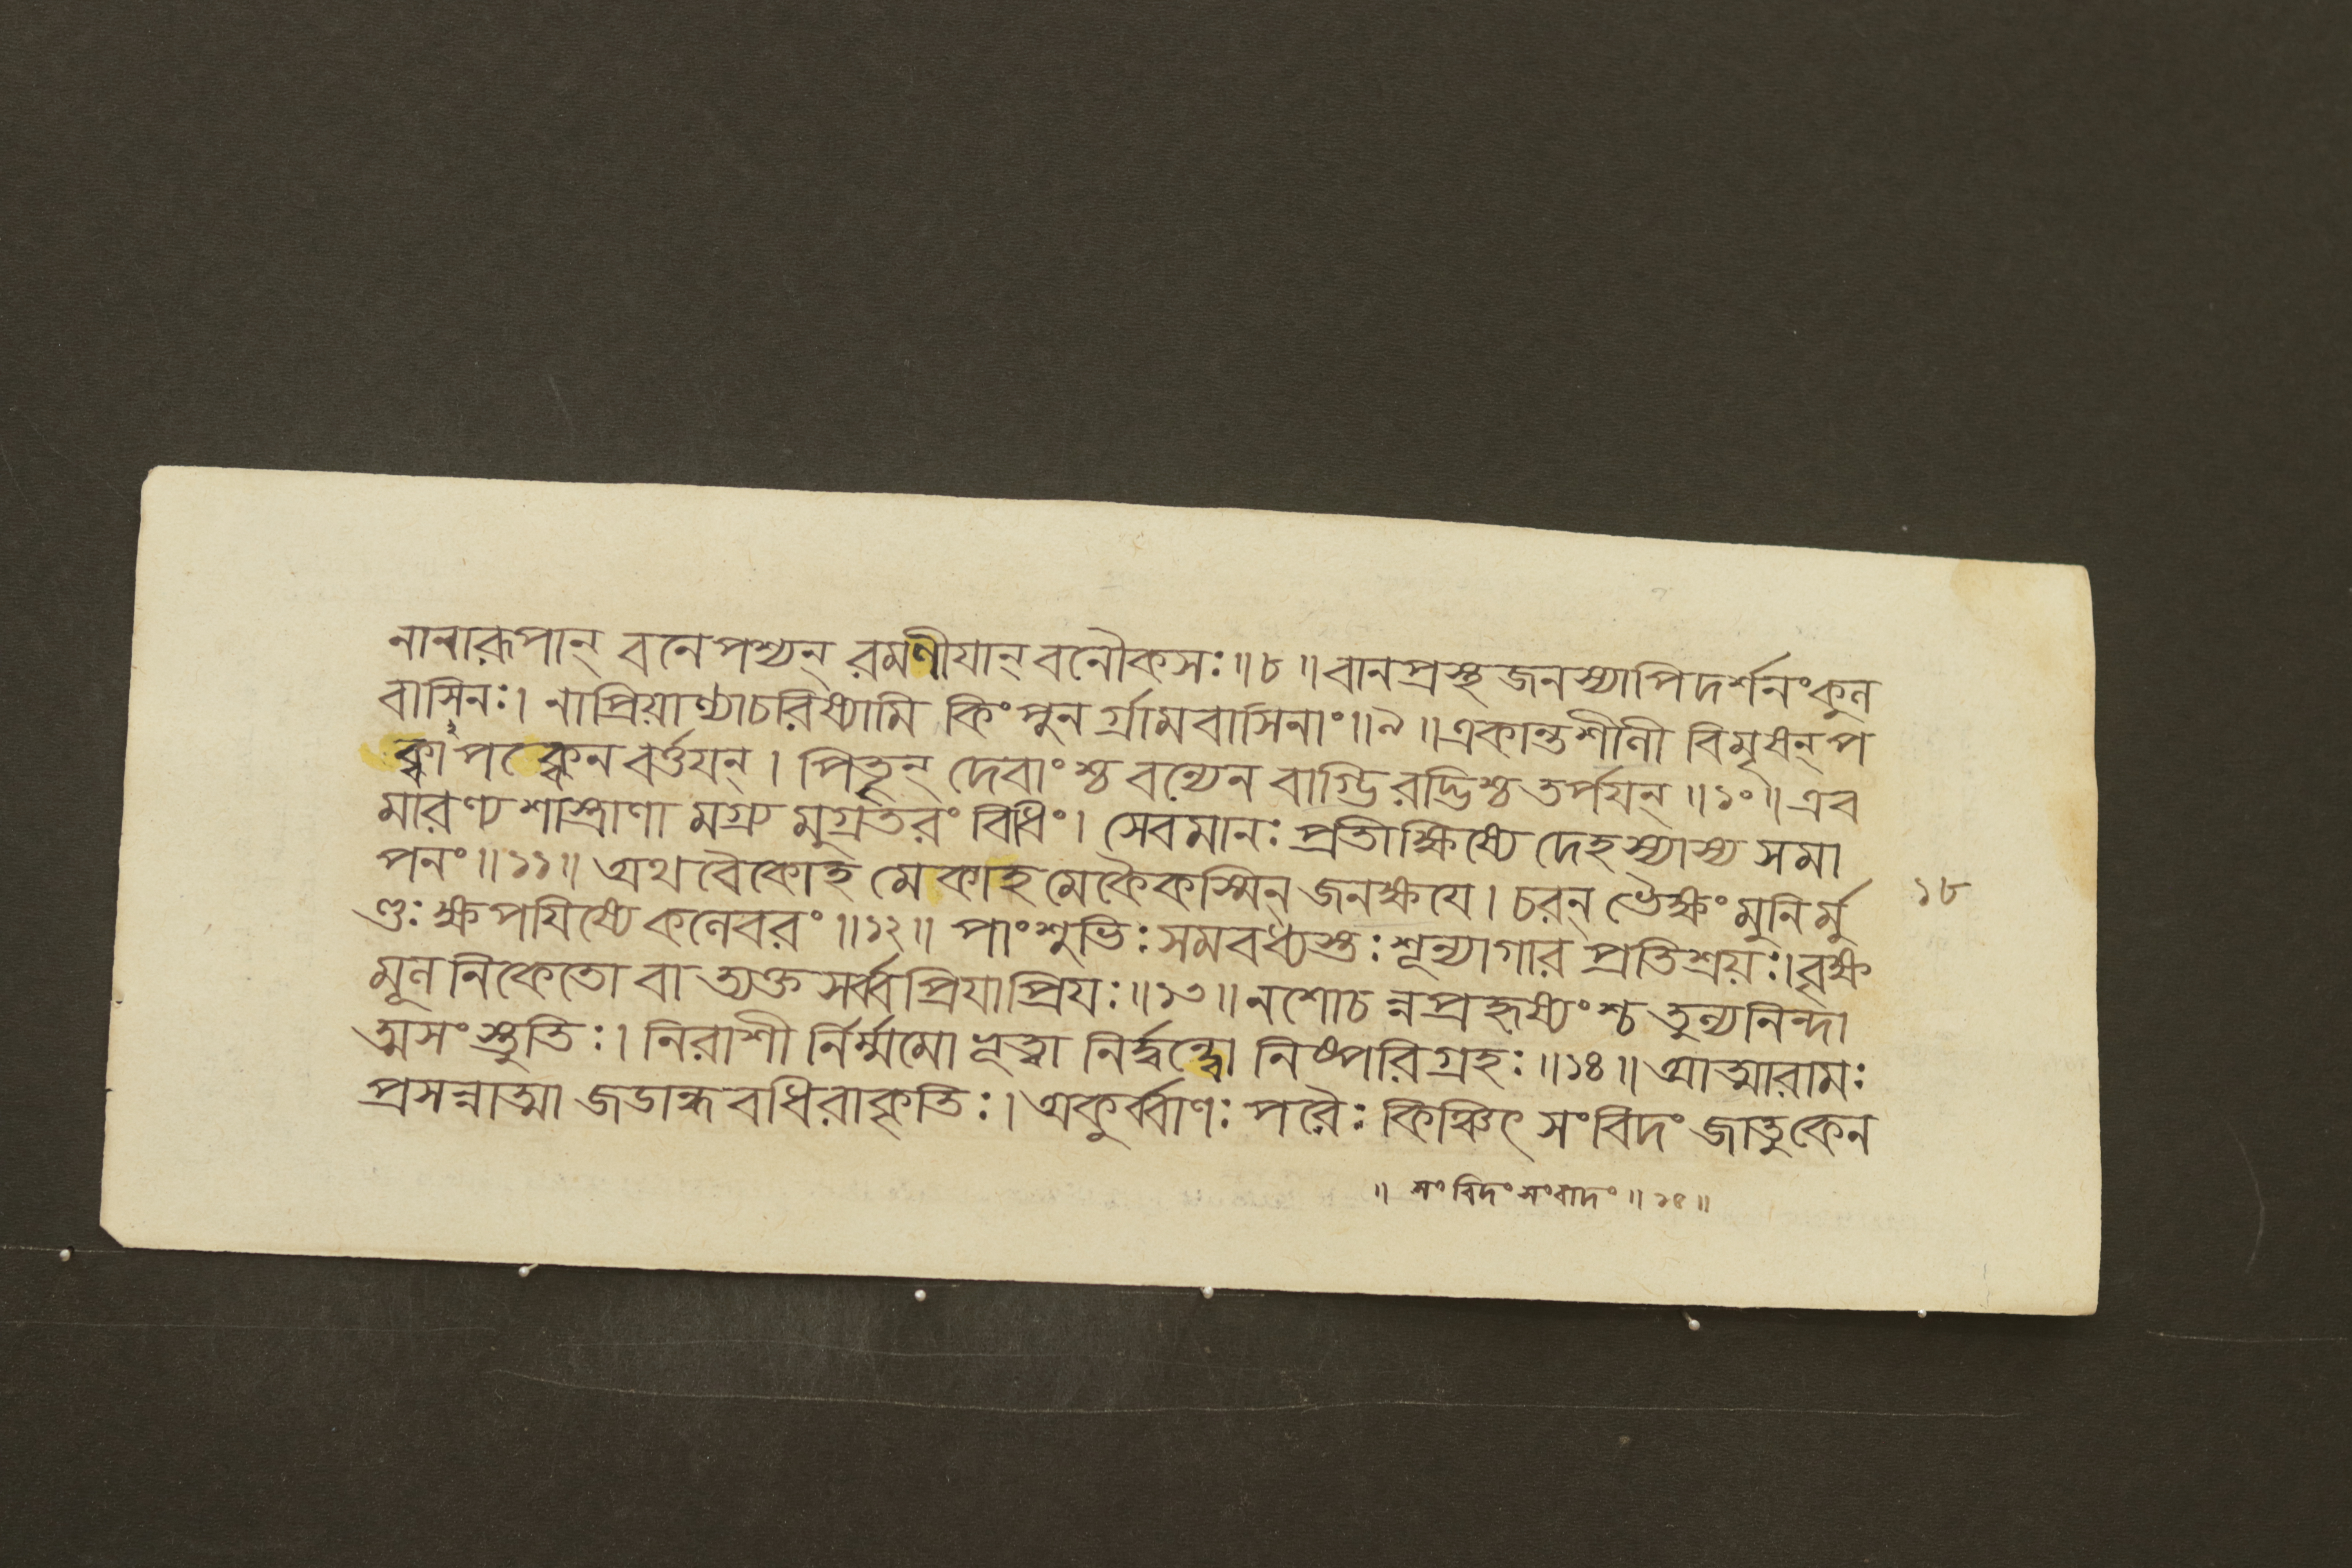 নানারূপান্ বনেপশ্যন্ রমণীযান্ বনৌকসঃ॥৮॥বানপ্রস্থজনস্যাপিদর্শনংকুল
বাসিনঃ। নাপ্রিয়াণ্যাচরিষ্যামি কিংপুন র্গ্রামবাসিনাং॥৯॥একান্তশীলী বিমৃষন্প
ক্কাপক্কেনবর্ত্তযন্। পিতৄন্ দেবাংশ্চ বন্যেন বাগ্ভিরদ্ভিশ্চতর্পযন্॥১০॥এব
মারণ্যশাস্ত্রাণা মগ্র্য মুগ্রতরং বিধিং। সেবমানঃ প্রতীক্ষিষ্যে দেহস্যাস্য সমা
পনং॥১১॥ অথবৈকোহ মেকাহমেকৈকস্মিন্ জনক্ষযে। চরন্ ভৈক্ষং মুনির্মু
ণ্ডঃ ক্ষপযিষ্যে কলেবরং॥১২॥ পাংশুভিঃ সমবধ্বস্তঃ শূন্যাগার প্রতিশ্রয়ঃ।বৃক্ষ
মূল নিকেতো বা ত্যক্ত সর্ব্বপ্রিযাপ্রিযঃ॥১৩॥নশোচ ন্নপ্রহৃষ্যংশ্চ তুল্যনিন্দা
ত্মসংস্তুতিঃ। নিরাশী র্নির্ম্মমো ভূত্বা নির্দ্বন্দ্বো নিষ্পরিগ্রহঃ॥১৪॥আত্মারামঃ
প্রসন্নাত্মা জডান্ধবধিরাকৃতিঃ। অকুর্ব্বাণঃ পরৈঃ কিঞ্চিৎ সংবিদং জাতুকেন
১৮
॥ সংবিদংসংবাদং॥১৫॥